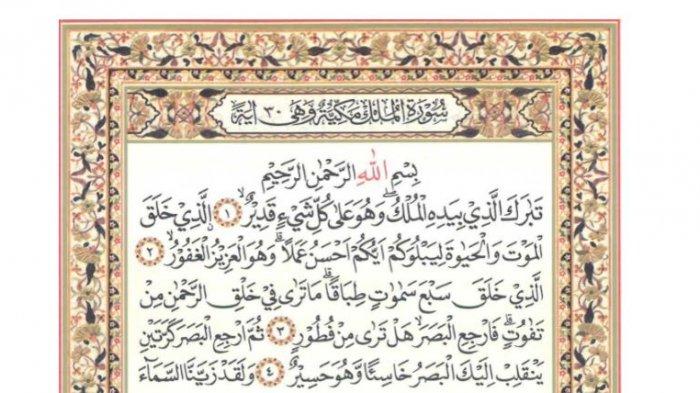 سُوْرَةُ الْمُلْكِ مَكِّيَّةٌ وَهِيَ ٣٠ اٰيَةً
بِسْمِ اللهِ الرَّحْمٰنِ الرَّحِيْمِ
تَبٰرَكَ الَّذِيْ بِيَدِهِ الْمُلْكُۖ وَهُوَ عَلٰى كُلِّ شَيْءٍ قَدِيْرٌۙ ١ الَّذِيْ خَلَقَ
الْمَوْتَ وَالْحَيٰوةَ لِيَبْلُوَكُمْ اَيُّكُمْ اَحْسَنُ عَمَلًاۗ وَهُوَ الْعَزِيْزُ الْغَفُوْرُۙ ٢
الَّذِيْ خَلَقَ سَبْعَ سَمٰوٰتٍ طِبَاقًاۗ مَا تَرٰى فِيْ خَلْقِ الرَّحْمٰنِ مِنْ
تَفٰوُتٍۗ فَارْجِعِ الْبَصَرَۙ هَلْ تَرٰى مِنْ فُطُوْرٍ ٣ ثُمَّ ارْجِعِ الْبَصَرَ كَرَّتَيْنِ
يَنْقَلِبْ اِلَيْكَ الْبَصَرُ خَاسِئًا وَّهُوَ حَسِيْرٌ ٤ وَلَقَدْ زَيَّنَّا السَّمَاۤءَ